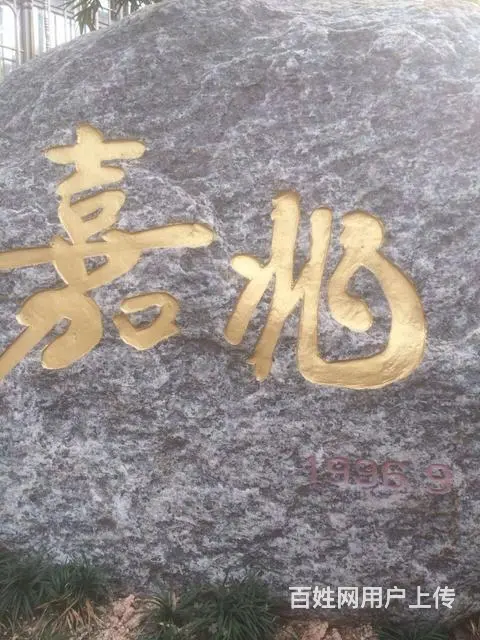 嘉兆
1996.9
百姓网用户上传